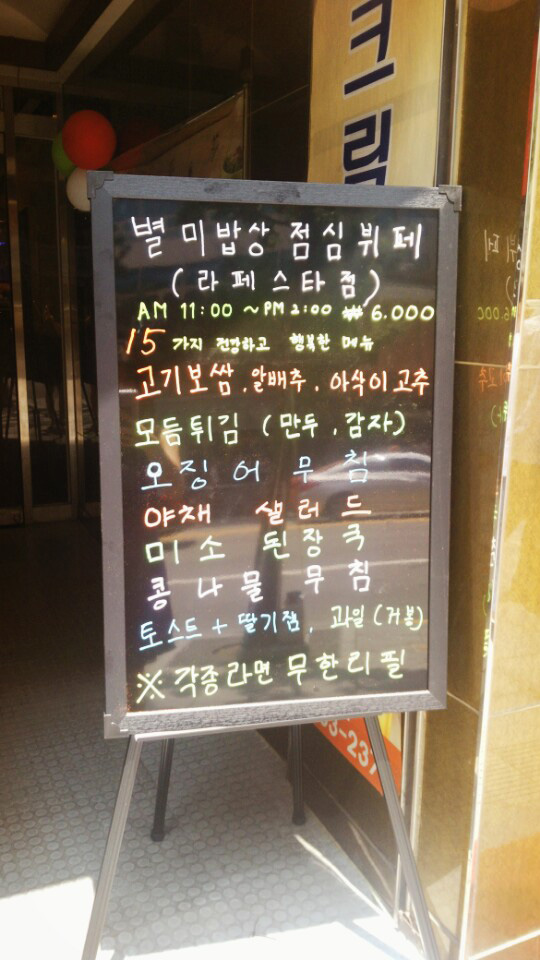 크림
별미밥상 점심뷔페
(라페스타점)
AM 11:00 ~ PM 2:00 ₩6.000
15 가지 건강하고 행복한 메뉴
고기보쌈, 알배추, 아삭이고추
모듬튀김 (만두, 감자)
오징어무침
야채 샐러드
미소 된장국
콩나물 무침
토스트 + 딸기잼, 과일 (거봉)
※ 각종라면 무한리필